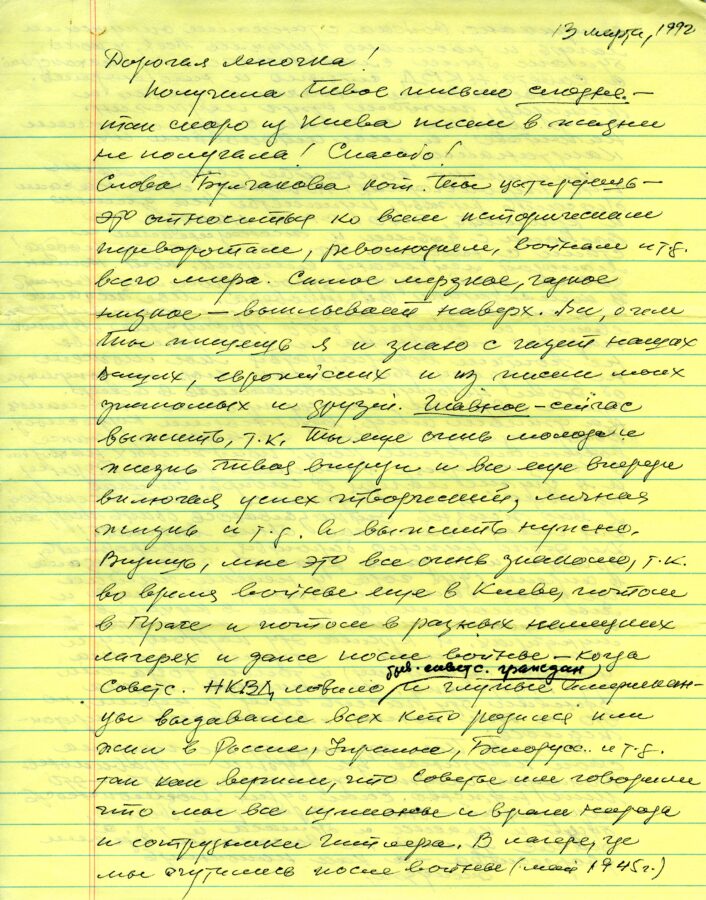 13 марта, 1992
Дорогая Леночка!
Получила Твое письмо сегодня –
так скоро из Киева писем в жизни
не получала! Спасибо!
Слова Булгакова кот. Ты цитируешь –
это относиться ко всем историческим
переворотам, революциям, войнам и т.д.
всего мира. Самое мерзкое, гадкое
низкое – выплывает наверх. Все, о чем
Ты пишешь я и знаю с газет наших
Ваших, европейских и из писем моих
знакомых и друзей. Главное – сейчас
выжить, т.к. Ты еще очень молода и
жизнь Твоя внуки и все еще впереди
включая успех творческий, личная
жизнь и т.д. А выжить нужно.
Видишь, мне это все очень знакомо, т.к.
во время войны еще в Киеве, потом
в Праге и потом в разных немецких
лагерях и даже после войны – когда
быв. советс. граждан
Советс. НКВД ловило и глупые Американ-
цы выдавали всех кто родился или
жил в России, Украине, Белорусс. и т.д.
так как верили, что Советы им говорили
что мы все шпионы и враги народа
и сотрудники Гитлера. В лагере, где
мы очутились после войны (май 1945г.)